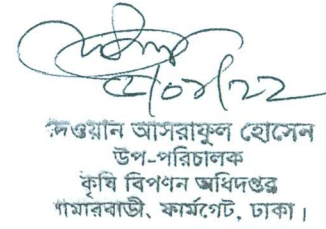 ০৫/০৬/২২
দেওয়ান আসরাফুল হোসেন
উপ-পরিচালক
কৃষি বিপণন অধিদপ্তর
খামারবাড়ী, ফার্মগেট, ঢাকা।